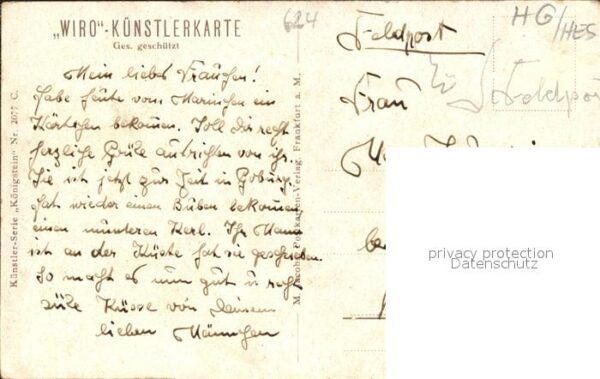 „WIRO"-KÜNSTLERKARTE
Ges. geschützt
624
HG/HES
Feldpost
Feldpost
Frau
Mein liebes Frauchen!
Habe heute vom Marinchen ein
Kärtchen bekommen. Soll Dir recht
herzliche Grüße ausrichten von ihr.
Sie ist jetzt zur Zeit in Coburg.
Hat wieder einen Buben bekommen
einen munteren Kerl. Ihr Mann
ist an der Küste hat sie geschrieben.
So mach es nun gut u recht
süße Küsse von Deinem
lieben Männchen
Künstler-Serie „Königstein" Nr. 2077 C.
M. Jacobs, Postkarten-Verlag, Frankfurt a. M.
privacy protection
Datenschutz